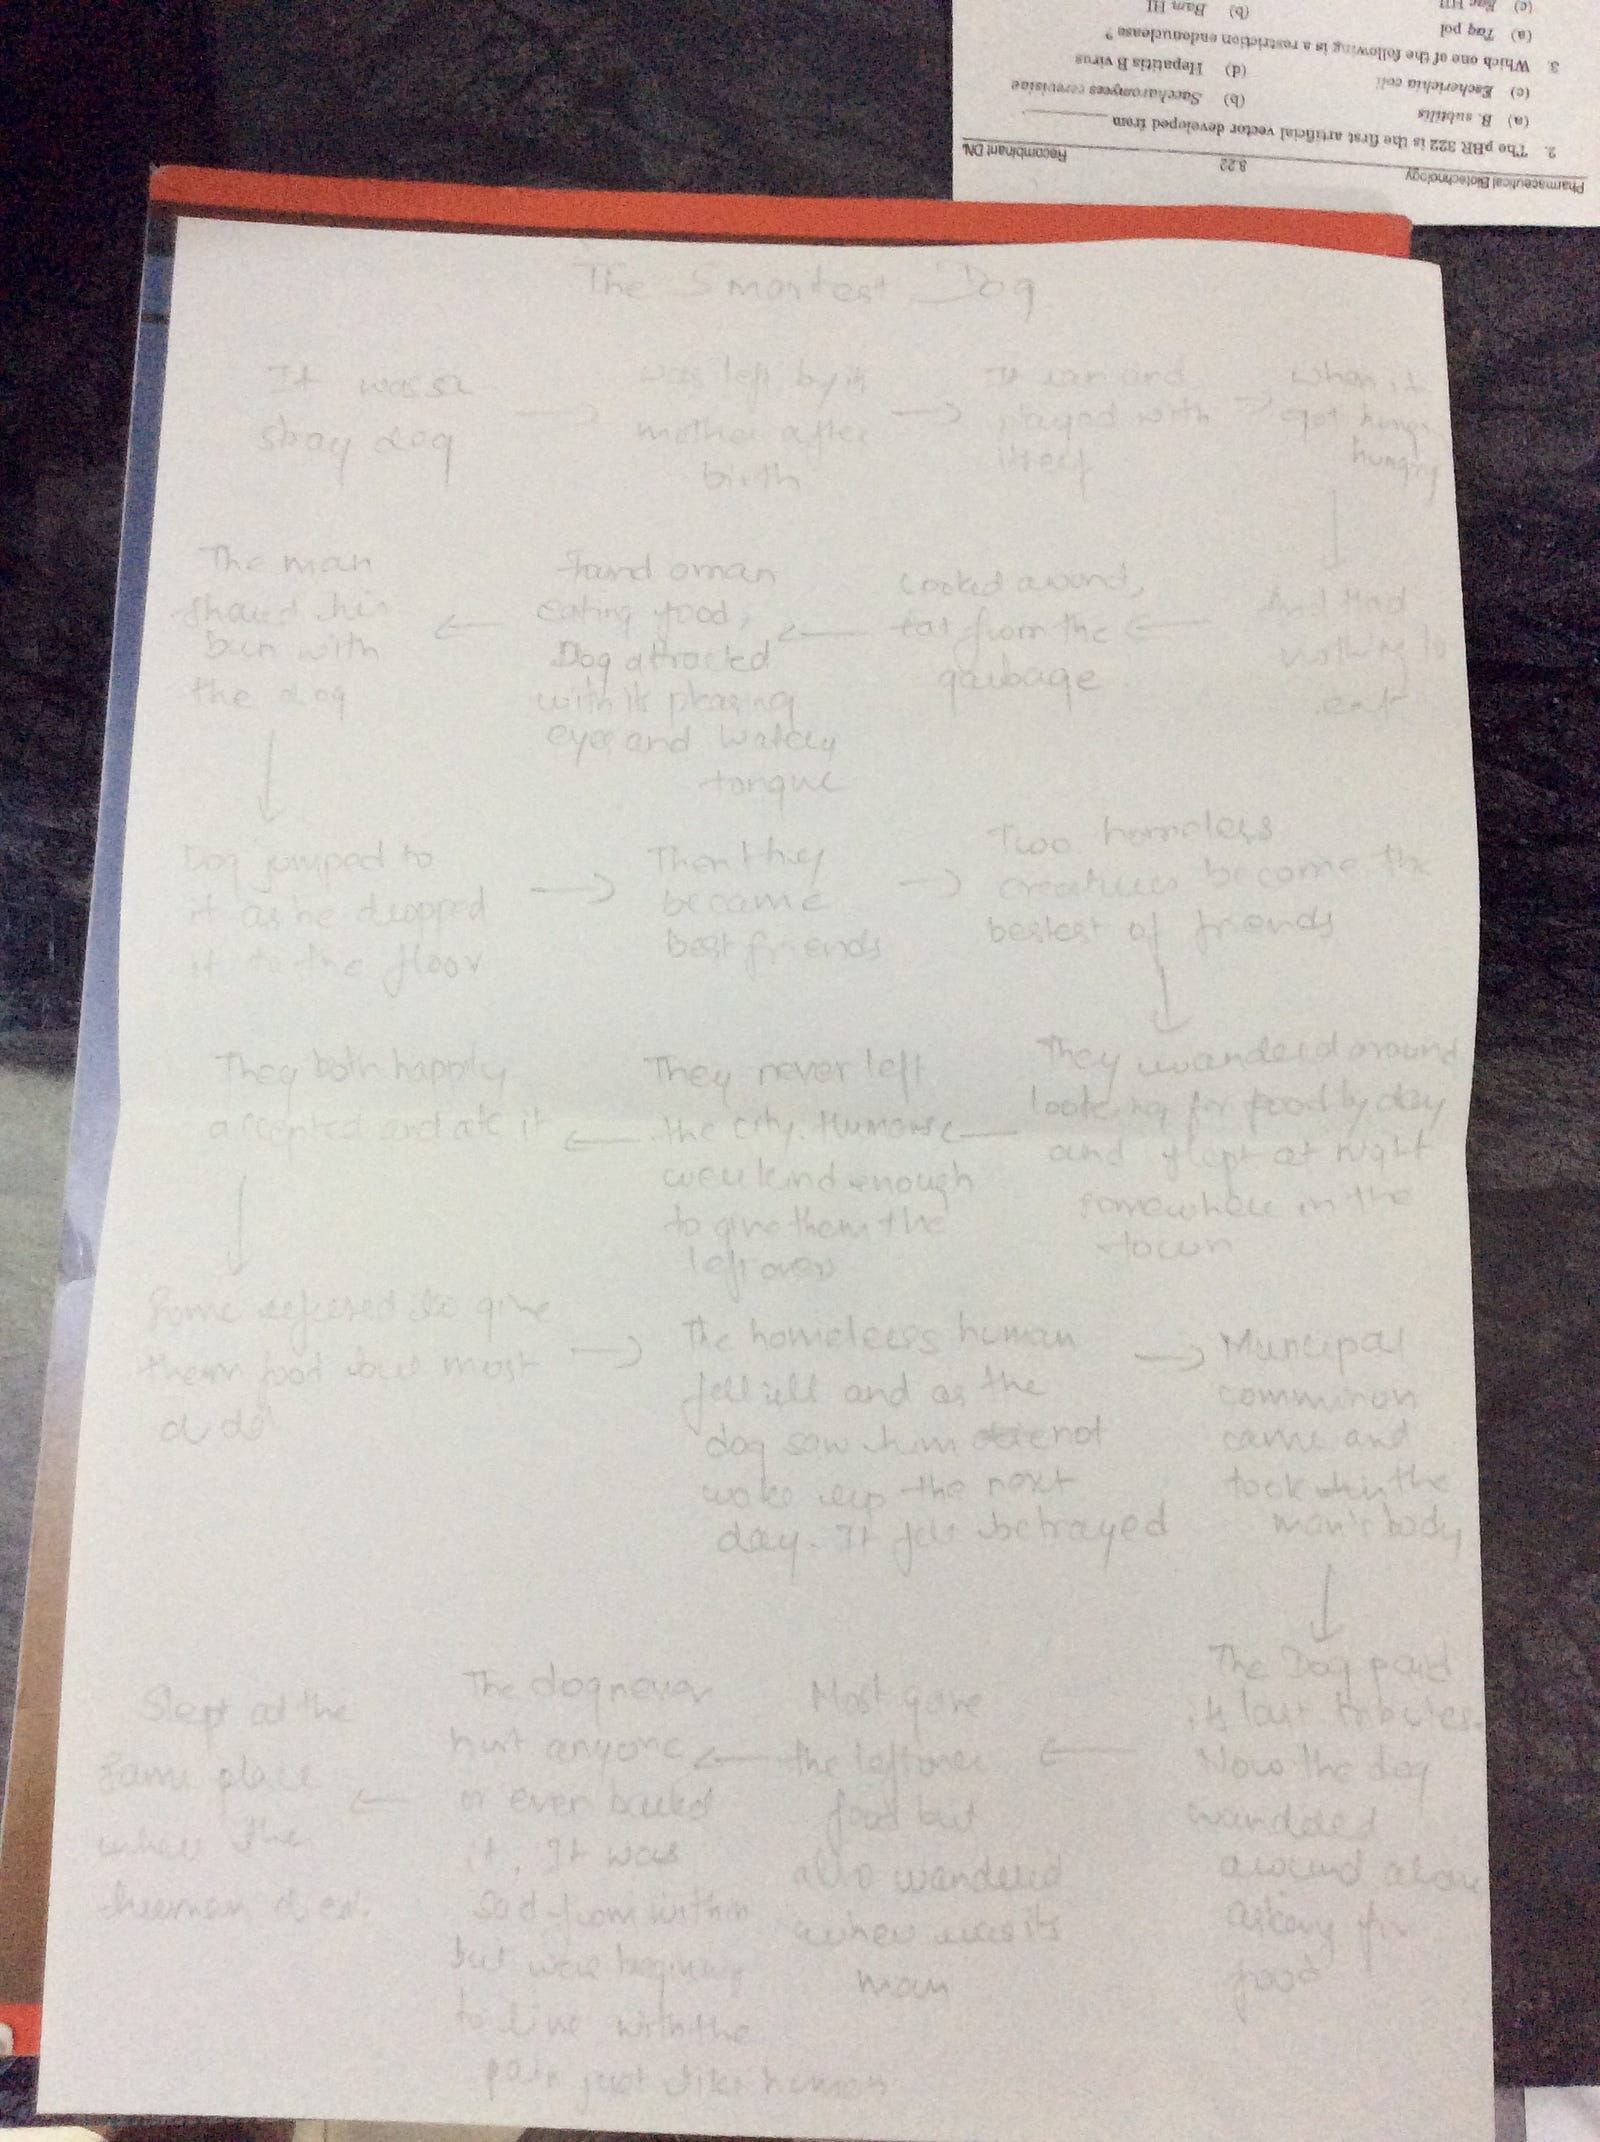 Pharmaceutical Biotechnology 8.22 Recombinant DN
2. The pBR 322 is the first artificial vector developed from ________.
(a) B. subtilis (b) Saccharomyces cerevisiae
(c) Escherichia coli (d) Hepatitis B virus
3. Which one of the following is a restriction endonuclease ?
(a) Taq pol (b) Bam HI
(c)
The Smartest Dog
It was a
stray dog
was left by it
mother after
birth
It ran and
played with
itself
when it
got hungr
hungry
And Had
nothing to
eat
Looked around,
Eat from the
garbage
found a man
eating food,
Dog attracted
with its pleasing
eyes and watery
tongue
The man
shared his
bun with
the dog
Dog jumped to
it as he dropped
it to the floor
Then they
became
best friends
Two homeless
creatures become the
bestest of friends
They wandered around
looking for food by day
and slept at night
somewhere in the
town
They never left
the city. Humans
were kind enough
to give them the
leftovers
They both happily
accepted and ate it
Some refused to give
them food but most
did
The homeless human
fell ill and as the
dog saw him not
woke up the next
day. It felt betrayed
Muncipal
came and
took the
man's body
The Dog paid
its last tributes.
Now the dog
wandered
around alone
asking for
food
Most gave
the leftover
food but
also wandered
its
man
The dog never
hurt anyone
or even barked
it. It was
sad from within
but were
to live with the
pain just like human
Slept at the
same place
where the
human died.